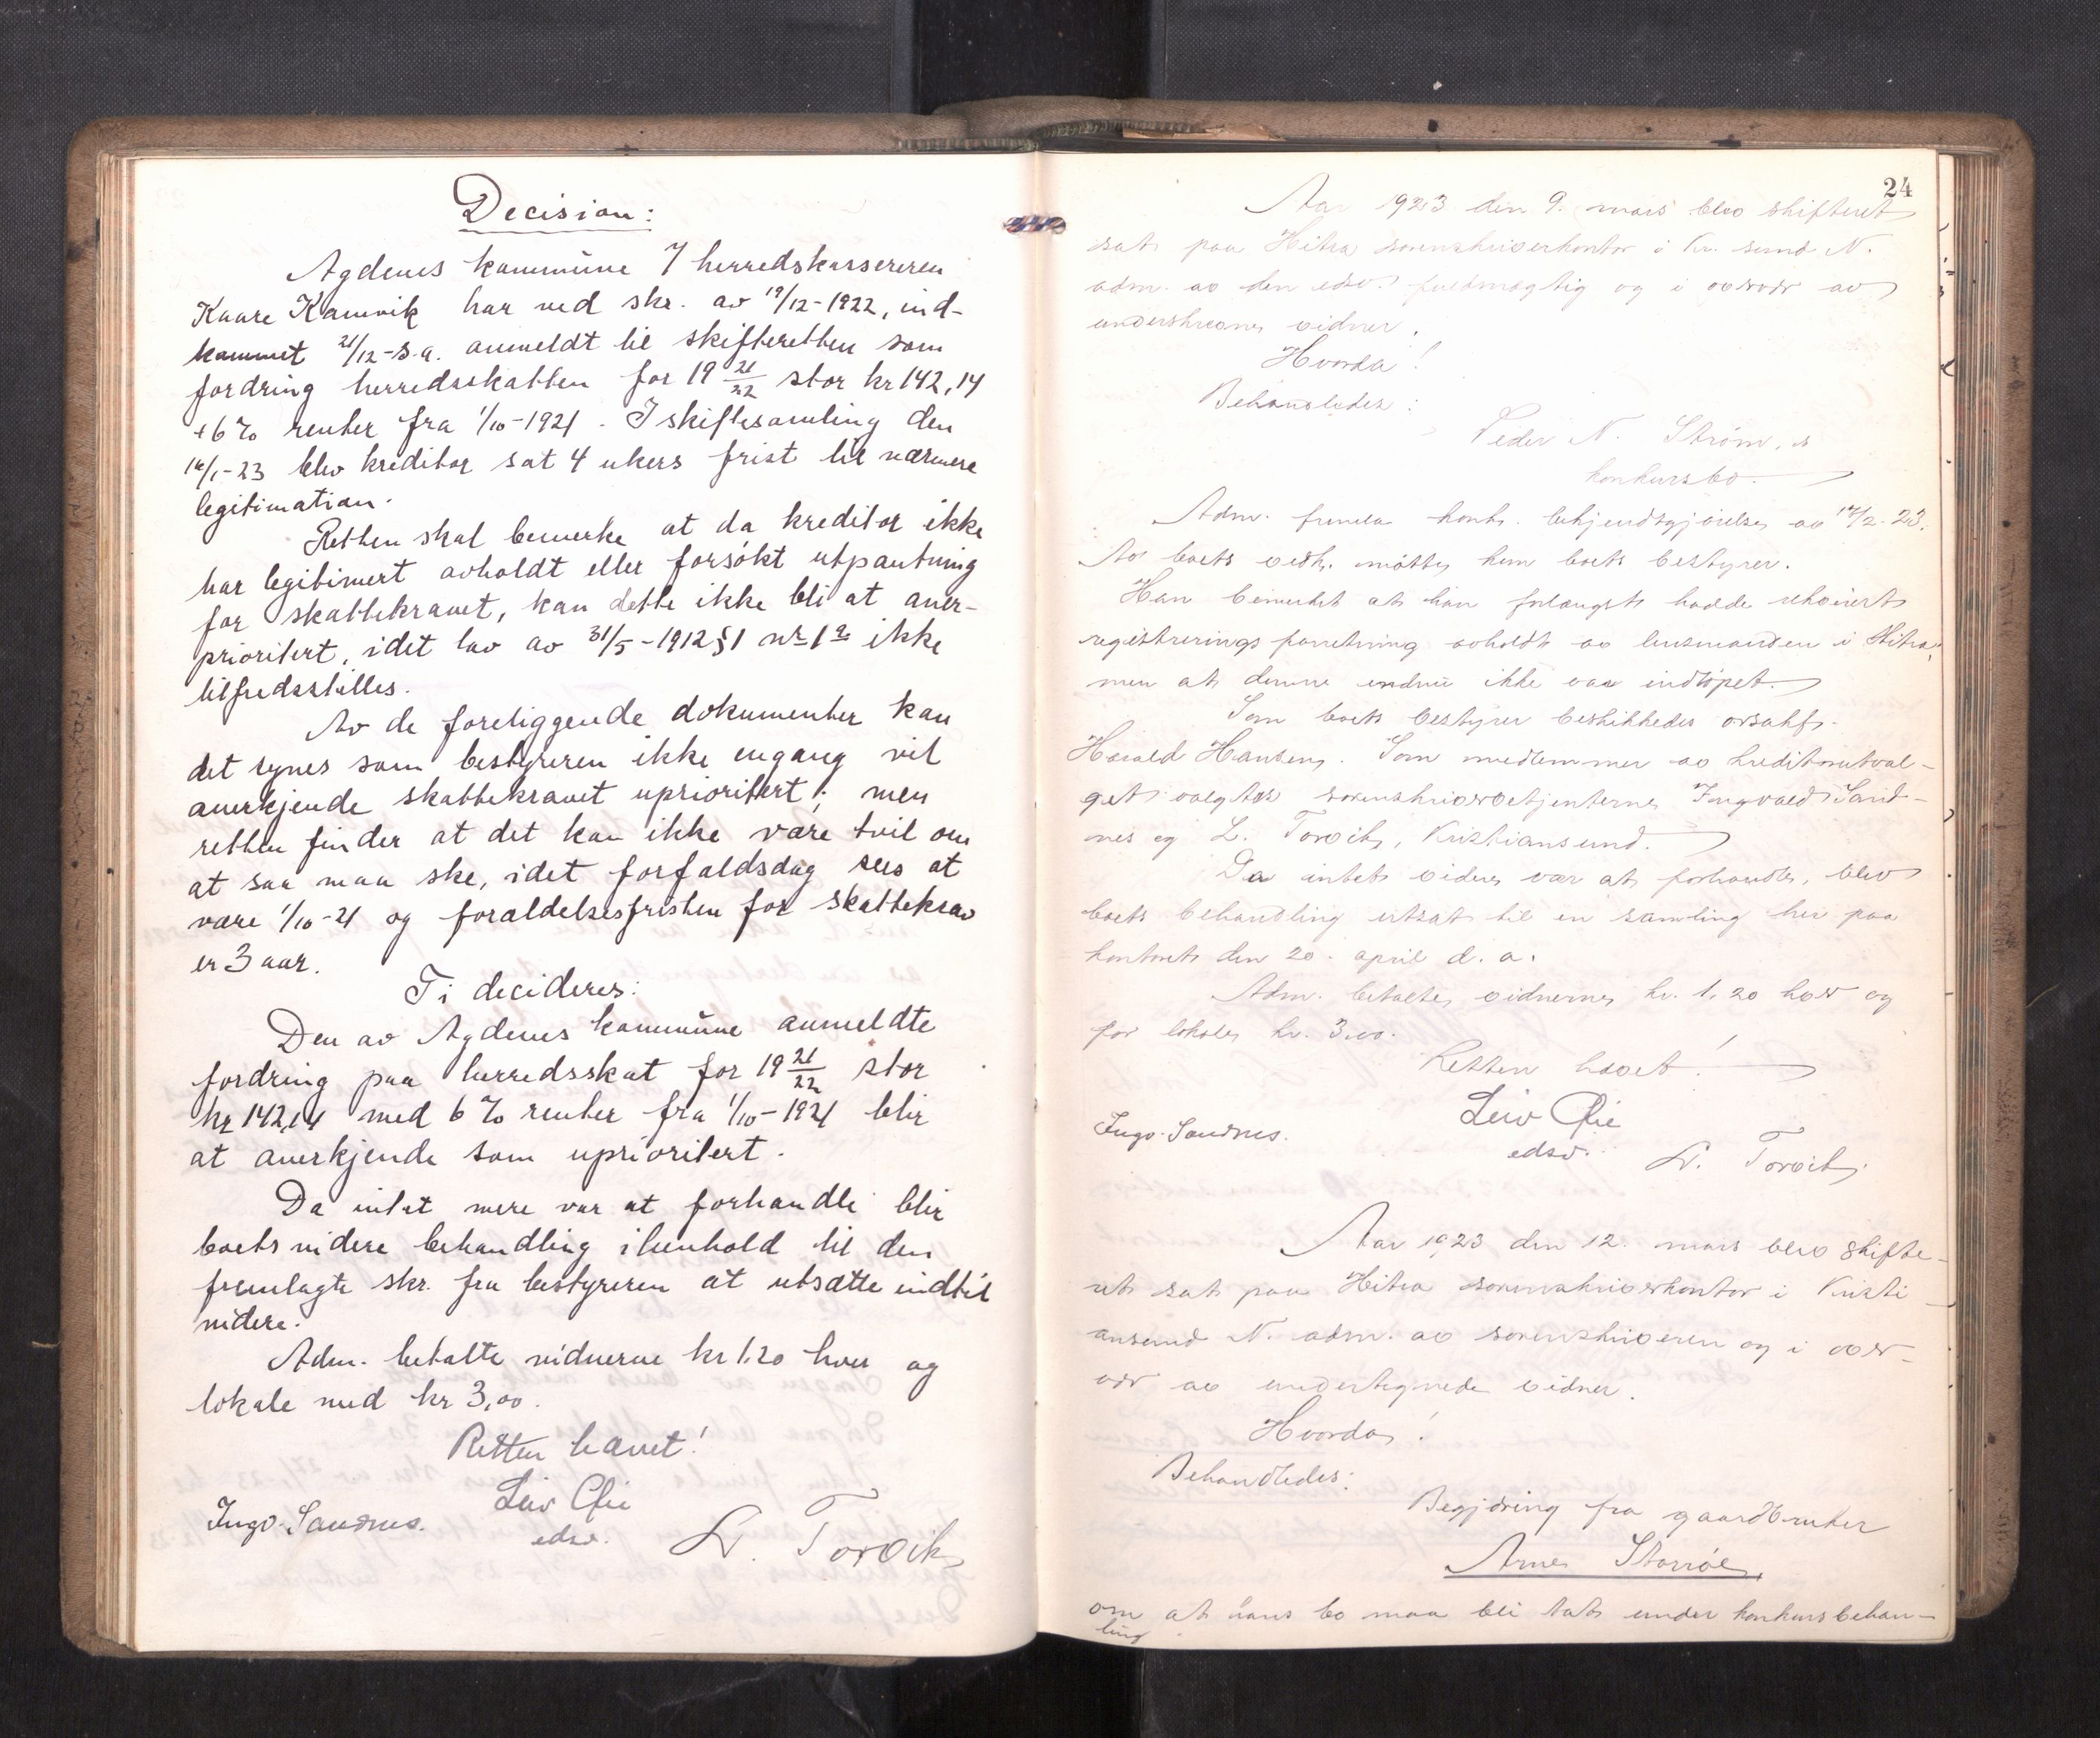 Decision:
Agdenes kommune / herredskassereren
Kaare Kamvik har ved skr. av 19/12-1922, ind-
kommet 21/12-s.a. anmeldt til skifteretten som
fordring herredsskatten for 19 21/22 stor kr 142,14
+ 6 % renter fra 1/10-1921. I skiftesamling den
16/1-23 blev kreditor sat 4 ukers frist til nærmere
legitimation.
Retten skal bemerke at da kreditor ikke
har legitimert avholdt eller forsøkt utpantning
for skattekravet, kan dette ikke bli at aner-
prioritert, idet lov av 31/5-1912 § 1 nr 1 a ikke
tilfredsstilles.
Av de foreliggende dokumenter kan
det synes som bestyreren ikke engang vil
anerkjende skattekravet uprioritert; men
retten finder at det kan ikke være tvil om
at saa maa ske, idet forfaldsdag sees at
være 1/10-21 og foraldelsesfristen for skattekrav
er 3 aar.
Ti decideres:
Den av Agdenes kommune anmeldte
fordring paa herredsskat for 19 21/22 stor
kr 142,14 med 6 % renter fra 1/10-1921 blir
at anerkjende som uprioritert.
Da intet mere var at forhandle blir
boets videre behandling i henhold til den
fremlagte skr. fra bestyreren at utsætte indtil
videre.
Adm. betalte vidnerne kr 1.20 hver og
lokale med kr 3,00.
Retten hævet!
Leiv
Ingv. Sandnes.
edsv.
L. Torvik
24
Aar 1923 den 9. mars blev skifteret
sat paa Hitra sorenskriverkontor i Kr. sund N.
adm. av den edsv. fuldmægtig og i overvær av
underskrevne vidner.
Hvorda!
Behandledes:
Peder N. Strøm,s
konkursbo.
Adm. fremla kontr. bekjendtgjørelse av 17/2-23.
Av boets vedk. møtte kun boets bestyrer.
Han bemerket at han forlængst hadde rekvirert
registreringsforretning avholdt av lensmanden i Hitra,
men at denne endnu ikke var indløpet.
Som boets bestyrer beskikkedes orsakf.
Harald Hansen. Som medlemmer av kreditorutval-
get valgtes sorenskriverbetjenterne Ingvald Sand-
nes og L. Torvik, Kristiansund.
Da intet videre var at forhandle, blev
boets behandling utsat til en samling her paa
kontoret den 20. april d. a.
Adm. betalte vidnerne kr. 1.20 hver og
for lokale kr. 3.00.
Retten hævet!
Leiv
Ingv. Sandnes.
edsv.
L. Torvik.
Aar 1923 den 12. mars blev skifte-
ret sat paa Hitra sorenskriverkontor i Kristi-
ansund N. adm. av sorenskriveren og i over-
vær av undertegnede vidner.
Hvorda!
Behandledes:
Begjæring fra gaardbruker
Arne Storrøe
om at hans bo maa bli tat under konkursbehan-
ling